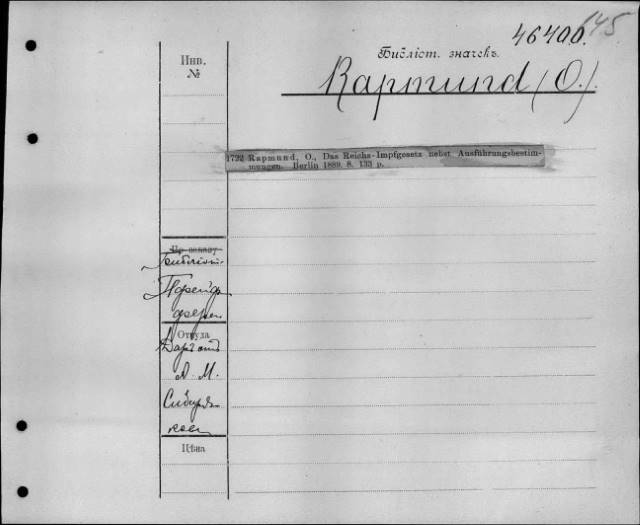 46400.
145
Библіот. значекъ.
Инв.
№
Rapmund (O.).
1722 Rapmund, O., Das Reichs-Impfgesetz nebst Ausführungsbestim-
mungen. Berlin 1889. 8. 133 p.
По заказу
Библіот.
Откуда
Даръ отъ
А. М.
Сибиряко
Цѣна